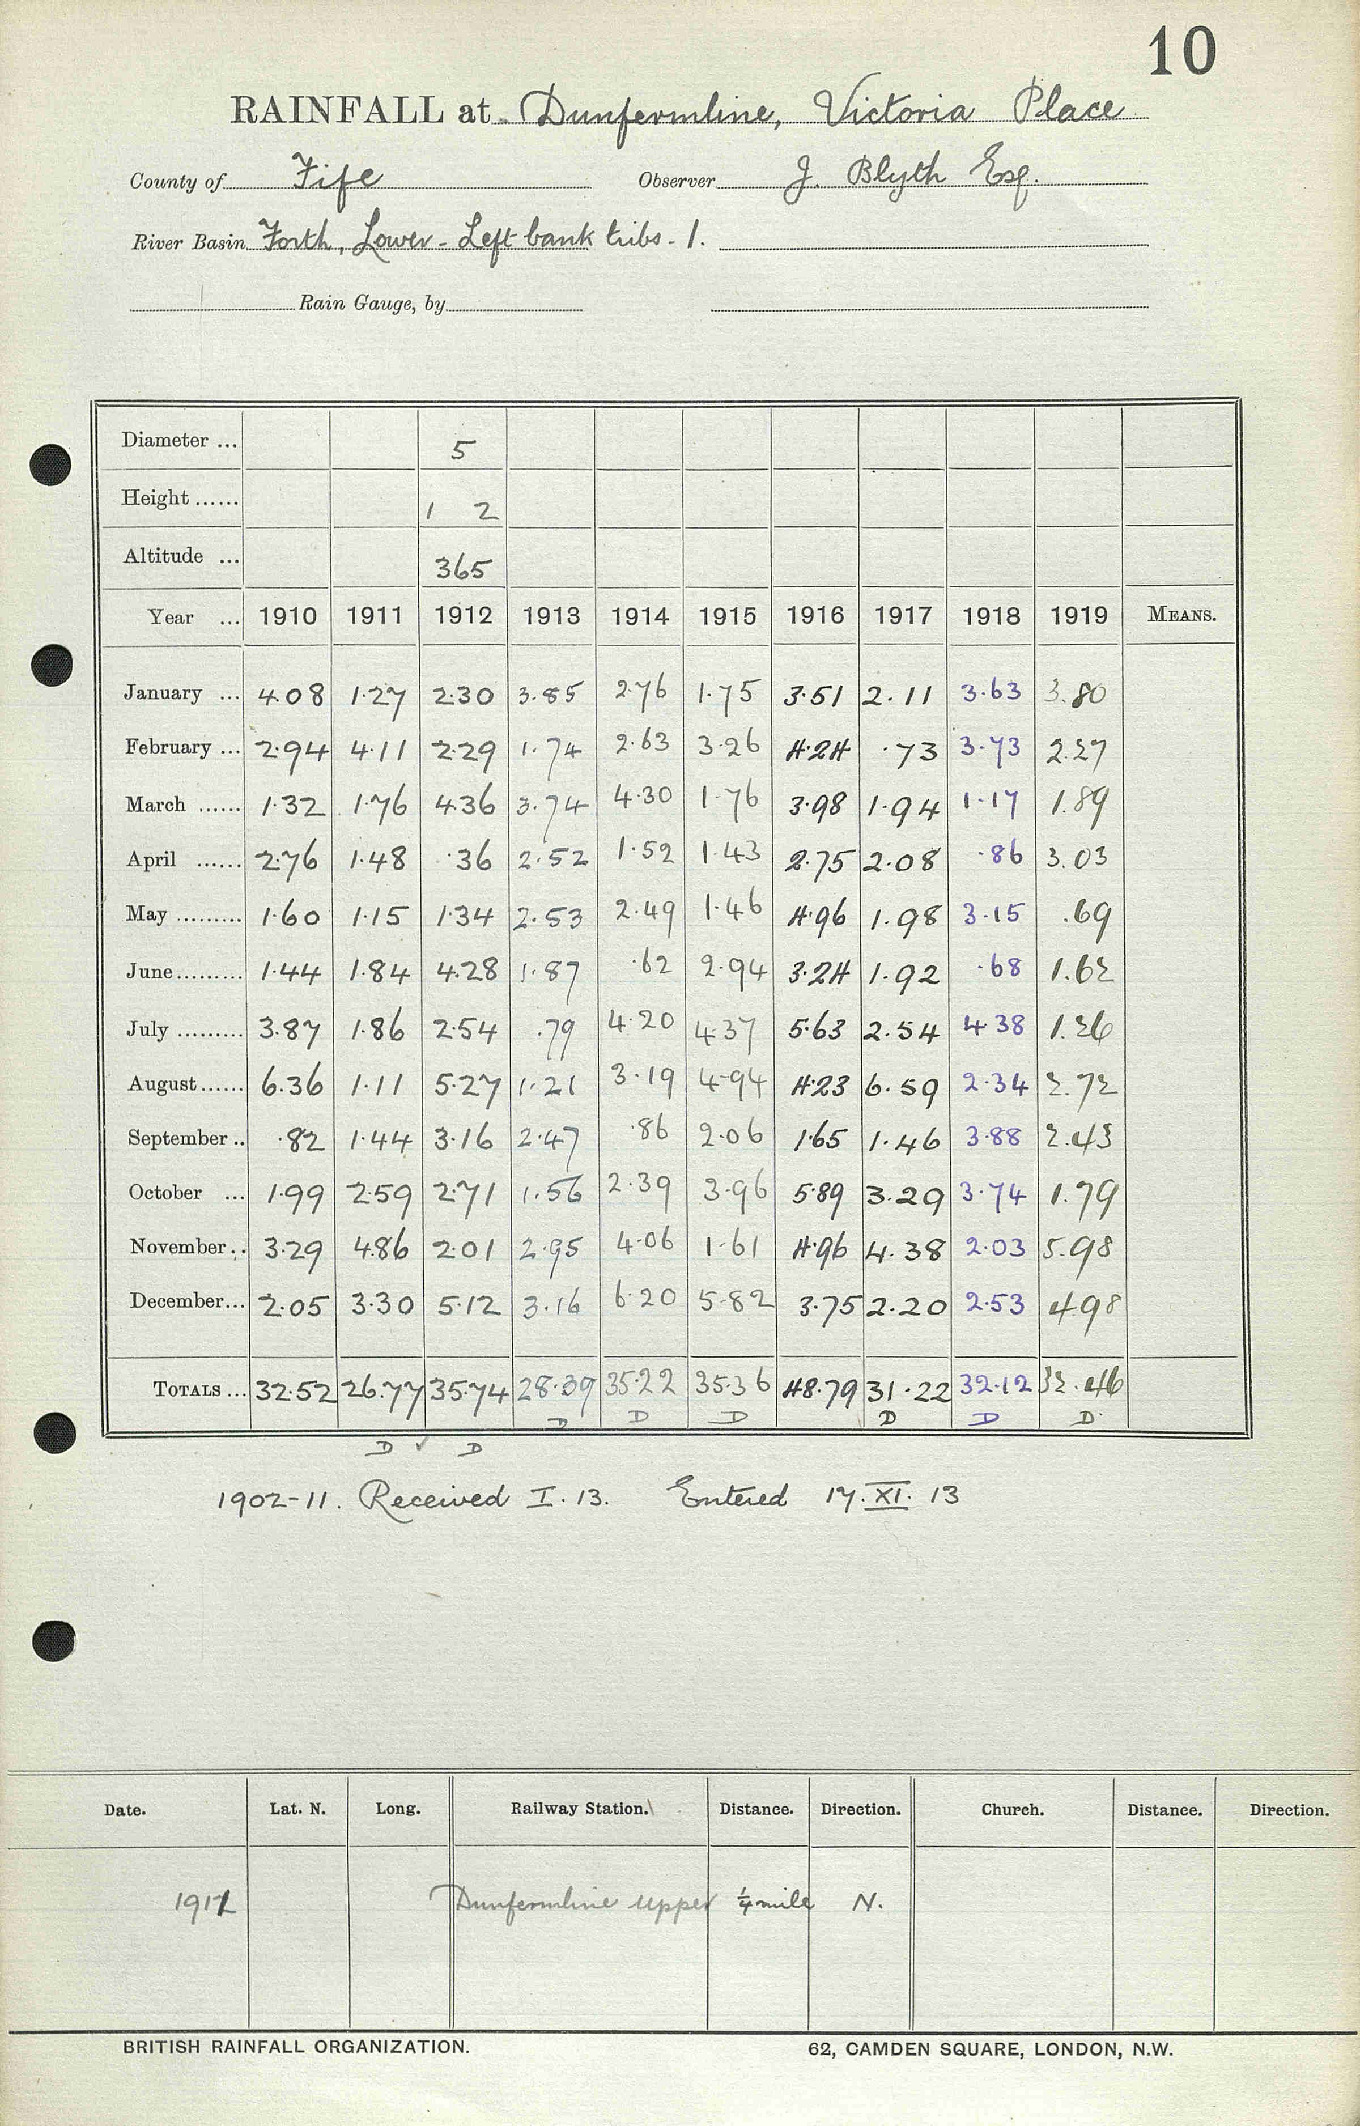 10
RAINFALL at Dunfermline, Victoria Place
County of Fife Observer J. Blyth Esq.
River Basin Forth, Lower - Left bank tribs - 1.
Rain Gauge, by
Diameter ... 5
Height ...... 1 2
Altitude ... 365
Year ... 1910 1911 1912 1913 1914 1915 1916 1917 1918 1919 MEANS.
January ... 4.08 1.27 2.30 3.85 2.76 1.75 3.51 2.11 3.63 3.80
February ... 2.94 4.11 2.29 1.74 2.63 3.26 4.24 .73 3.73 2.27
March ...... 1.32 1.76 4.36 3.74 4.30 1.76 3.98 1.94 1.17 1.89
April ...... 2.76 1.48 .36 2.52 1.52 1.43 2.75 2.08 .86 3.03
May ......... 1.60 1.15 1.34 2.53 2.49 1.46 4.96 1.98 3.15 .69
June ......... 1.44 1.84 4.28 1.87 .62 2.94 3.24 1.92 .68 1.62
July ......... 3.87 1.86 2.54 .79 4.20 4.37 5.63 2.54 4.38 1.26
August ...... 6.36 1.11 5.27 1.21 3.19 4.94 4.23 6.59 2.34 2.72
September .. .82 1.44 3.16 2.47 .86 2.06 1.65 1.46 3.88 2.43
October ... 1.99 2.59 2.71 1.56 2.39 3.96 5.89 3.29 3.74 1.79
November .. 3.29 4.86 2.01 2.95 4.06 1.61 4.96 4.38 2.03 5.98
December ... 2.05 3.30 5.12 3.16 6.20 5.82 3.75 2.20 2.53 4.98
TOTALS ... 32.52 26.77 35.74 28.39 35.22 35.36 48.79 31.22 32.12 32.46
D D D D D D
D ✓ D
1902-11. Received I. 13. Entered 17. XI. 13
Date. Lat. N. Long. Railway Station. Distance. Direction. Church. Distance. Direction.
Dunfermline Upper ¼ mile N.
BRITISH RAINFALL ORGANIZATION. 62, CAMDEN SQUARE, LONDON, N.W.